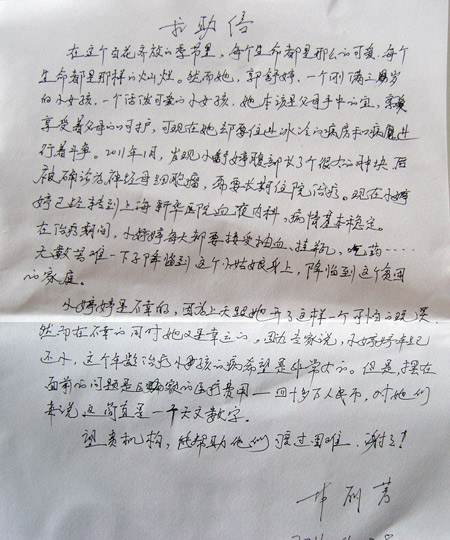 求助信
在这个百花齐放的季节里，每个生命都是那么的可爱，每个
生命都是那样的灿烂。然而她，郭舒婷，一个刚满三周岁
的小女孩，一个活泼可爱的小女孩，她本该是父母手中的宝，
享受着父母的呵护，可现在她却要住进冰冷的病房和病魔进
行着斗争。2011年1月，发现小舒婷腹部长了个很大的肿块后
被确诊为神经母细胞瘤，需要长期住院治疗。现在小舒
婷已经转到上海新华医院血液内科，病情基本稳定。
在治疗期间，小舒婷每天都要接受抽血、挂瓶、吃药……
无数苦难一下子降临到这个小姑娘身上，降临到这个贫困
的家庭。
小舒婷是不幸的，因为上天跟她开了这样一个不小的玩笑。
然而在不幸的同时她又是幸运的，因为专家说，小舒婷年纪
还小，这个年龄治疗小女孩的病希望是非常大的。但是摆在
面前的问题是巨额的医疗费用——四十多万人民币，对他们
来说这简直是一个天文数字。
望贵机构，能帮助他们渡过困难，谢谢！